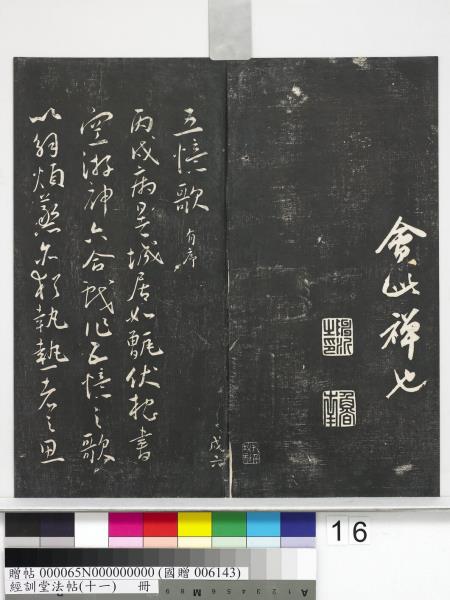 會此禪也
五憶歌 有序
丙戌病暑城居如甑伏枕書
空游神六合戲作五憶之歌
以弱煩蒸亦猶執熱者之思
戌六
16
贈帖 000065N000000000 (國贈 006143)
經訓堂法帖(十一) 冊